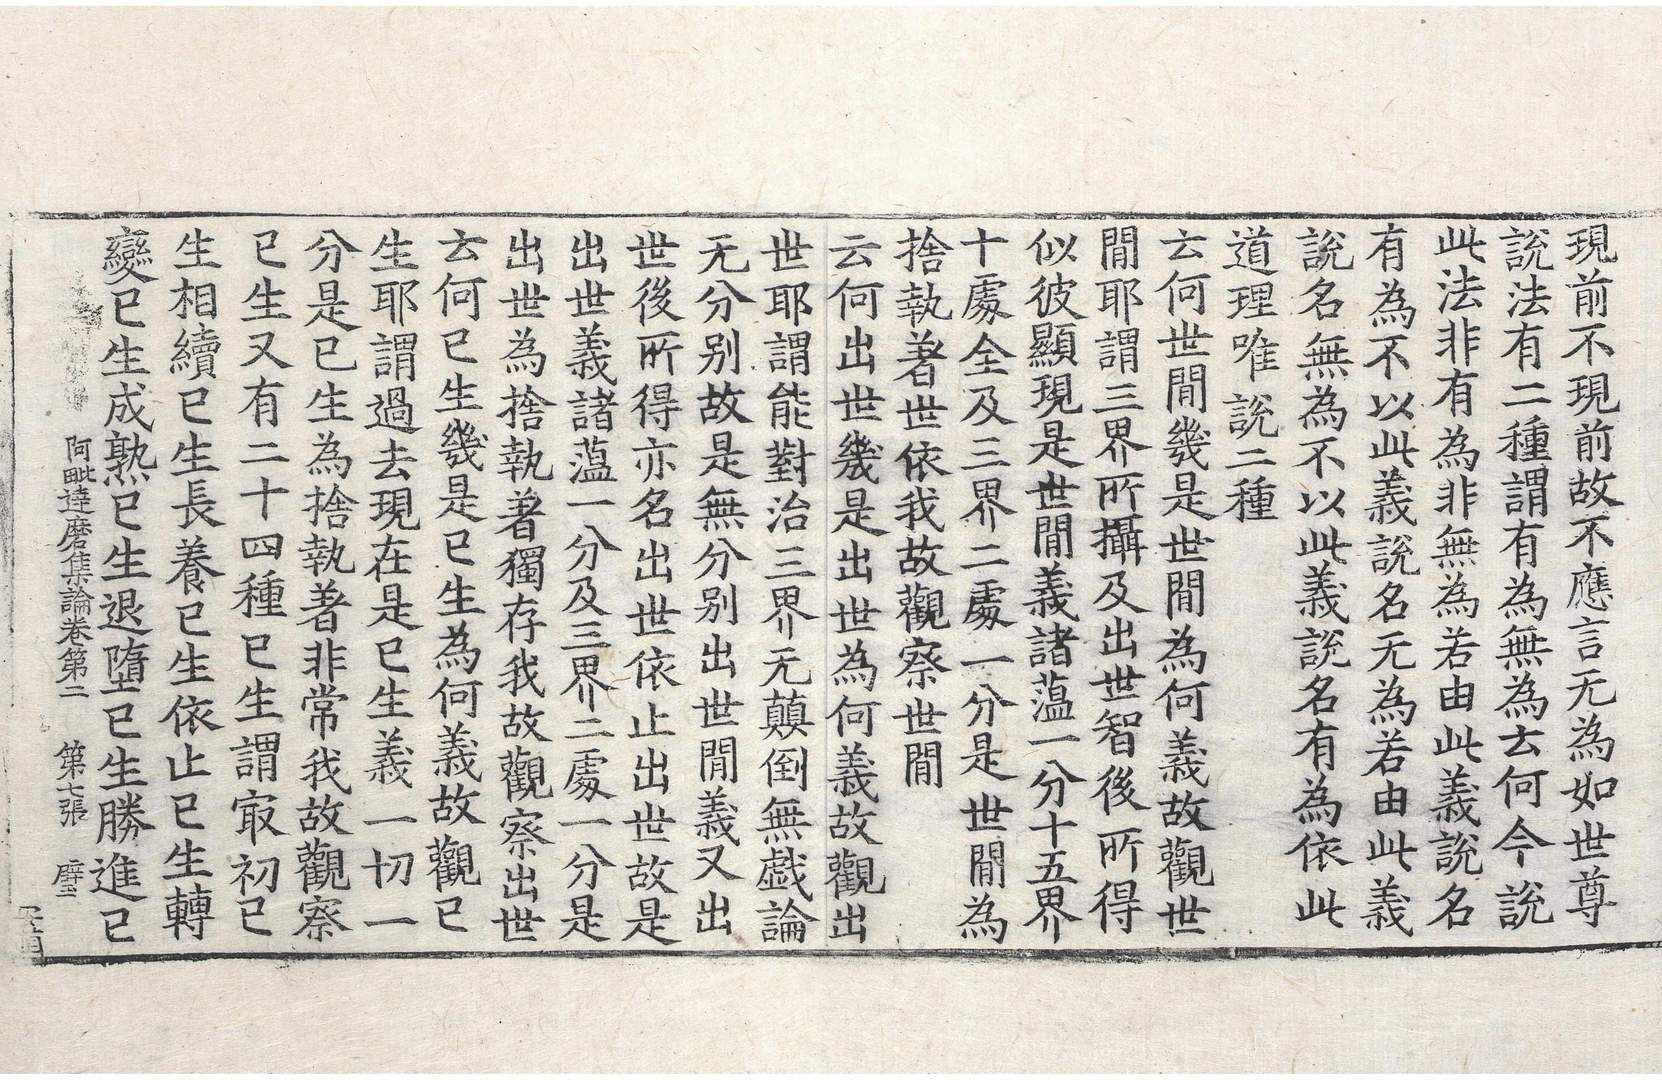 現前不現前故不應言无為如世尊
說法有二種謂有為無為云何今說
此法非有為非無為若由此義說名
有為不以此義說名无為若由此義
說名無為不以此義說名有為依此
道理唯說二種
云何世間幾是世間為何義故觀世
間耶謂三界所攝及出世智後所得
似彼顯現是世間義諸蘊一分十五界
十處全及三界二處一分是世間為
捨執著世依我故觀察世間
云何出世幾是出世為何義故觀出
世耶謂能對治三界无顛倒無戲論
无分別故是無分別出世間義又出
世後所得亦名出世依止出世故是
出世義諸蘊一分及三界二處一分是
出世為捨執著獨存我故觀察出世
云何已生幾是已生為何義故觀已
生耶謂過去現在是已生義一切一
分是已生為捨執著非常我故觀察
已生又有二十四種已生謂㝡初已
生相續已生長養已生依止已生轉
變已生成熟已生退墮已生勝進已
阿毗達磨集論卷第二　第七張　璧